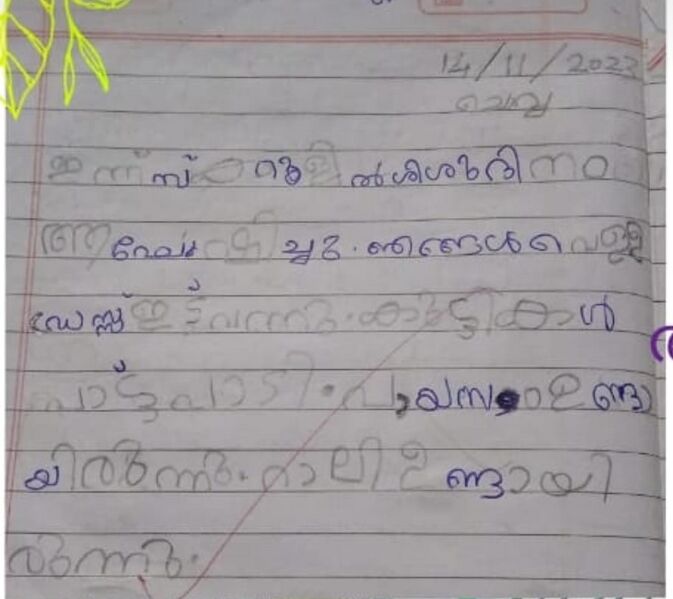 14/11/2023
ചൊവ്വ
ഇന്ന് സ്കൂളിൽ ശിശുദിനം
ആഘോഷിച്ചു. ഞങ്ങൾ വെള്ള
ഡ്രസ്സ് ഇട്ട് വന്നു. കുട്ടികൾ
പാട്ട് പാടി. പായസം ഉണ്ടാ
യിരുന്നു. റാലി ഉണ്ടായി
രുന്നു.